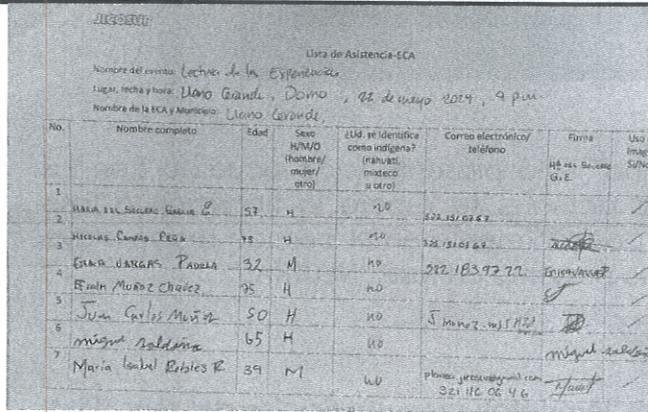 JICOSUR
Lista de Asistencia-ECA
Nombre del evento: Lectura de las Experiencias
Lugar, fecha y hora: Llano Grande, Domo, 22 de mayo 2024, 4 p.m.
Nombre de la ECA y Municipio: Llano Grande,
No. Nombre completo Edad Sexo H/M/O (hombre/ mujer/ otro) ¿Ud. se identifica como indígena? (náhuatl, mixteco u otro) Correo electrónico/ teléfono Firma Uso Imag Si/No
Mª del Socorro G.E.
1 María del Socorro 57 H no
2 Nicolas 73 H no
3 VARGAS 32 M no 322 183 97 22
4 Efraín Muñoz Chavez 75 H no
5 Juan Carlos Muñoz 50 H no
6 miguel saldaña 65 H no miguel saldaña
7 María Isabel Robles R 39 M no
321 116 06 46